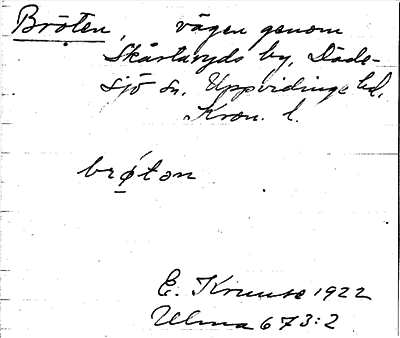 Bröten, vägen genom
Skårtaryds by, Däde-
sjö sn. Uppvidinge hd.
Kron. l.
brǿ̲tən
E. Kruuse 1922
Ulma 673:2